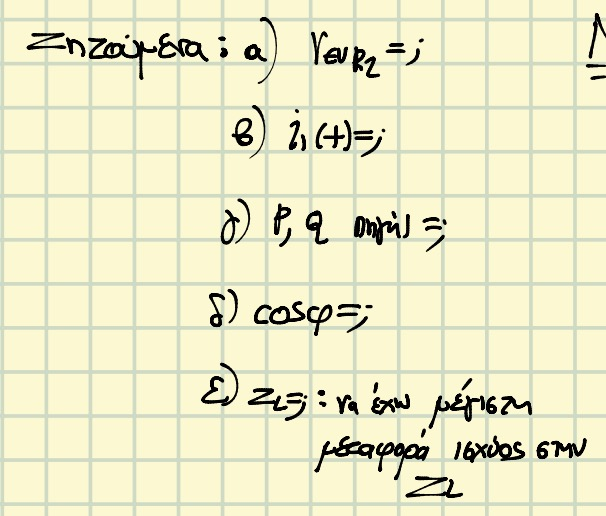 Ζητούμενα : α) V_{εν R_2} = ;
β) i_1(t) = ;
γ) P, Q πηγής = ;
δ) cosφ = ;
ε) Z_L = ; : να έχω μέγιστη
μεταφορά ισχύος στην
Z_L